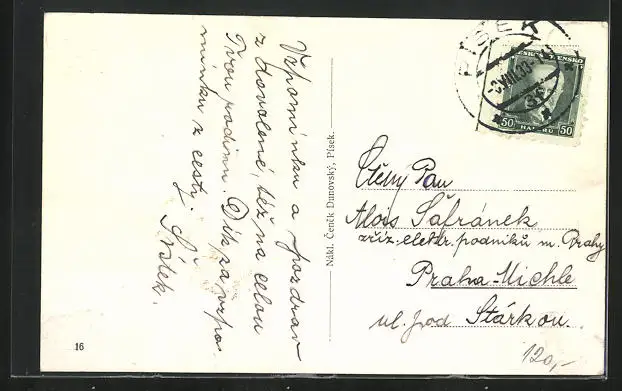 Vzpomínku a pozdrav
z dovolené, též na celou
Tvou rodinu. Dík za vzpo-
mínku z cesty.
Nákl. Čeněk Dunovský, Písek.
16
PÍSEK
ČESKOSLOVENSKO
50 HALÉŘŮ 50
Ctěný Pan
Alois Šafránek
zříz. elektr. podniků m. Prahy
Praha-Michle
ul. pod Stárkou.
120,-